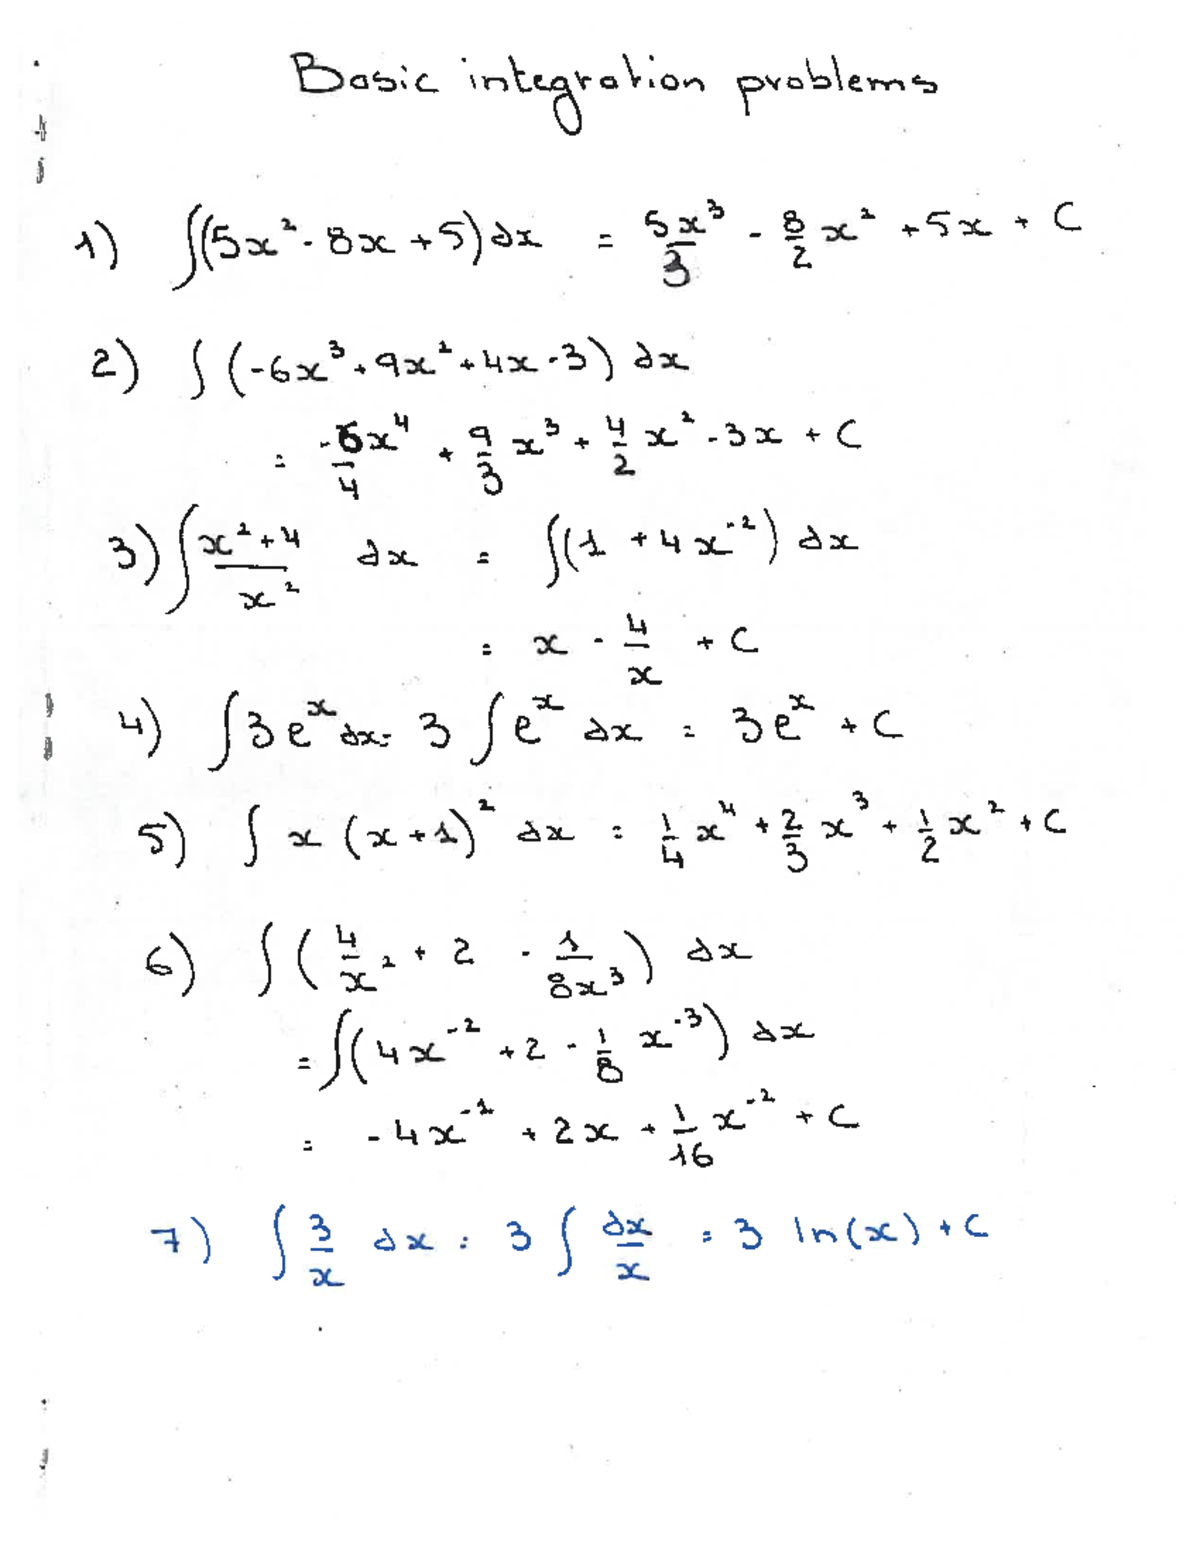 Basic integration problems
1) ∫(5x² - 8x + 5) dx = 5x³/3 - 8/2 x² + 5x + C
2) ∫(-6x³ + 9x² + 4x - 3) dx
= -6x⁴/4 + 9/3 x³ + 4/2 x² - 3x + C
3) ∫ (x² + 4)/x² dx = ∫(1 + 4x⁻²) dx
= x - 4/x + C
4) ∫ 3eˣ dx = 3 ∫ eˣ dx = 3eˣ + C
5) ∫ x (x + 1)² dx = 1/4 x⁴ + 2/3 x³ + 1/2 x² + C
6) ∫ (4/x² + 2 - 1/8x³) dx
= ∫(4x⁻² + 2 - 1/8 x⁻³) dx
= -4x⁻¹ + 2x + 1/16 x⁻² + C
7) ∫ 3/x dx = 3 ∫ dx/x = 3 ln(x) + C